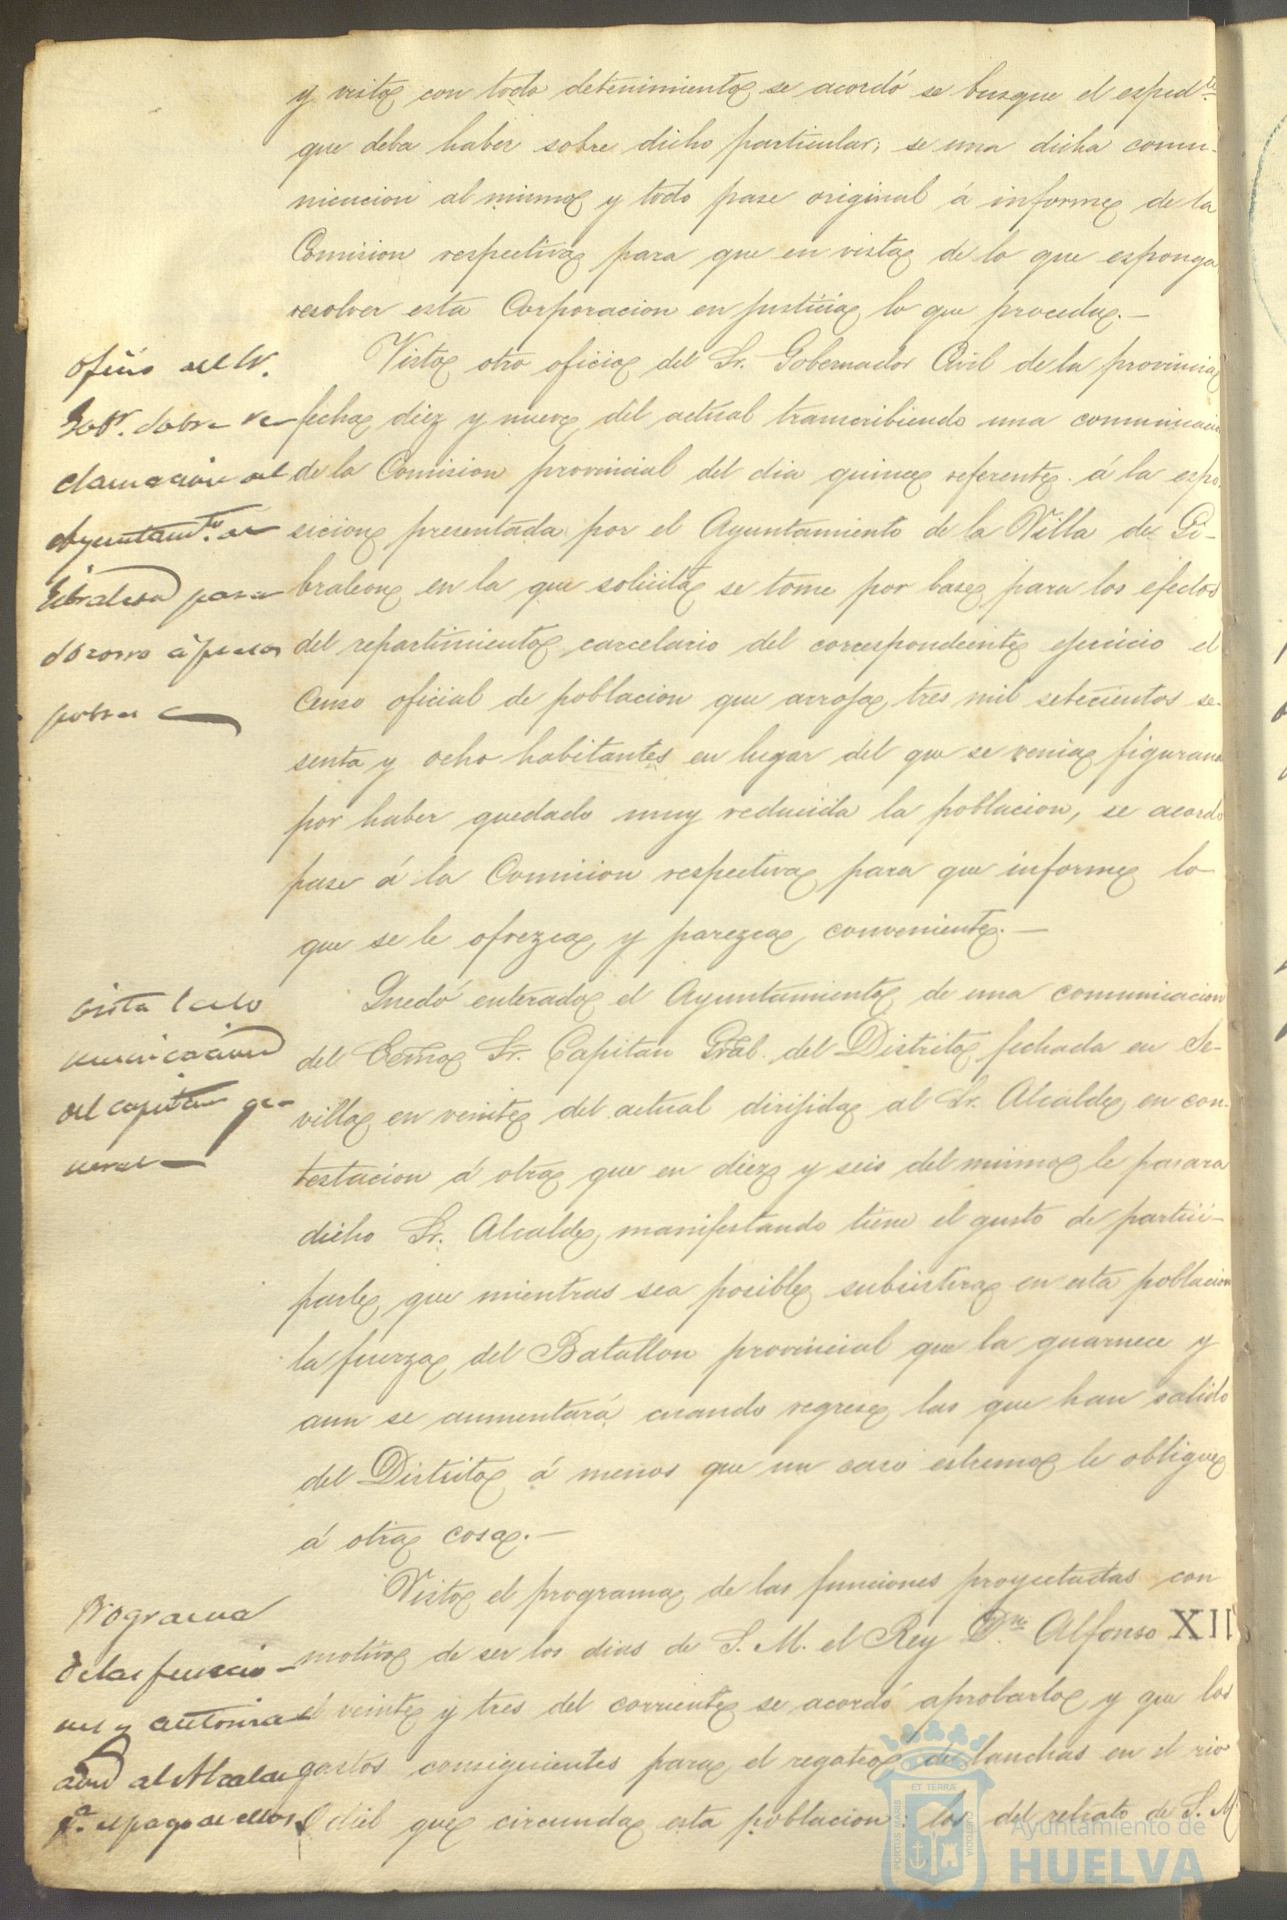 y visto con todo detenimiento se acordó se busque el espedte
que deba haber sobre dicho particular; se una dicha comu-
nicacion al mismo y todo pase original á informe de la
Comision respectiva para que en vista de lo que esponga
resolver esta Corporacion en justicia lo que proceda.—
Oficio del Sr.
Gobr. sobre re-
clamación del
Ayuntamto. de
Gibraleon para
socorro á presos
pobres
Visto otro oficio del Sr. Gobernador Civil de la provincia
fecha diez y nueve del actual transcribiendo una comunicacion
de la Comision provincial del dia quince referente á la espo-
sicion presentada por el Ayuntamiento de la Villa de Gi-
braleon en la que solicita se tome por base para los efectos
del repartimiento carcelario del correspondiente ejercicio el
Censo oficial de poblacion que arroja tres mil setecientos se-
senta y ocho habitantes en lugar del que se venia figurando
por haber quedado muy reducida la poblacion, se acordó
pase á la Comision respectiva para que informe lo
que se le ofrezca y parezca conveniente.—
Vista la co
municación
del capitan ge-
neral—
Quedó enterado el Ayuntamiento de una comunicacion
del Ecmo Sr. Capitan Gral. del Distrito fechada en Se-
villa en veinte del actual dirijida al Sr. Alcalde en con-
testacion á otra que en diez y seis del mismo le pasara
dicho Sr. Alcalde, manifestando tiene el gusto de partici-
parle que mientras sea posible subsistira en esta poblacion
la fuerza del Batallon provincial que la guarnece y
aun se aumentará cuando regrese las que han salido
del Distrito á menos que un caso estremo le obligue
á otra cosa.—
Programa
de las funcio-
nes y autoriza
cion al Alcalde
pa. el pago de ellos
Visto el programa de las funciones proyectadas con
motivo de ser los dias de S. M. el Rey Dn. Alfonso XII
el veinte y tres del corriente se acordó aprobarlo y que los
gastos consiguientes para el regateo de lanchas en el rio
Odiel que circunda esta poblacion los del retrato de S. M.
PORTUS MARIS
ET TERRÆ
CUSTODIA
Ayuntamiento de
HUELVA